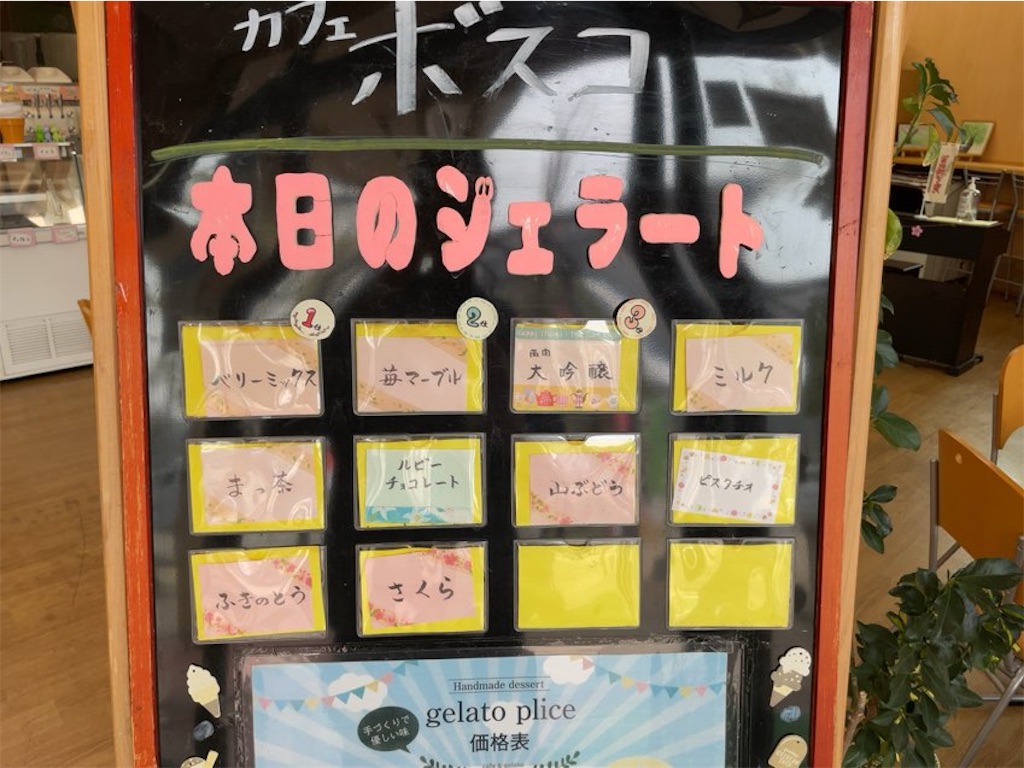 カフェ ボスコ
本日のジェラート
1位
2位
3位
ベリーミックス
苺マーブル
函南
大吟醸
ミルク
まっ茶
ルビー
チョコレート
山ぶどう
ピスタチオ
ふきのとう
さくら
Handmade dessert
gelato plice
手づくりで
優しい味
価格表
cafe & gelato